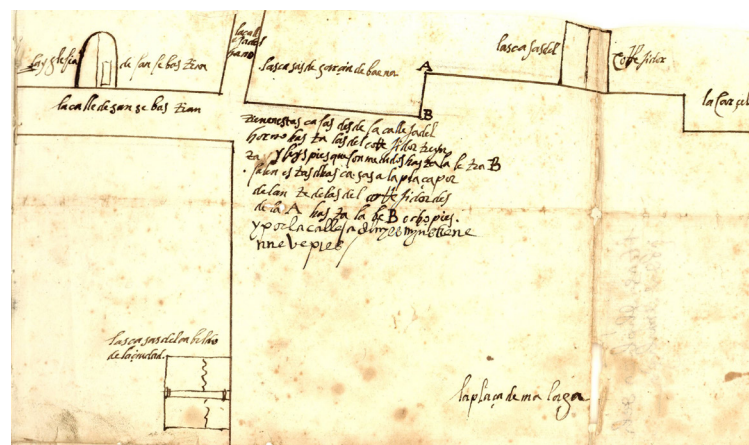 la yglesia de san sebastian
la calle
del
horno
las casas de garcia de baena
A
las casas del corregidor
la carçel
la calle de san sebastian
B
tienen estas casas desde la calle ja del
horno hasta las del corregidor treyn
ta y seys pies que son medidos hasta la letra B
salen estas dhas casas a la plaça por
delante de las del corregidor des
de la A hasta la be B ocho pies.
y por la calleja
nueve pies
las casas del cabildo
de la çiudad.
la plaça de malaga